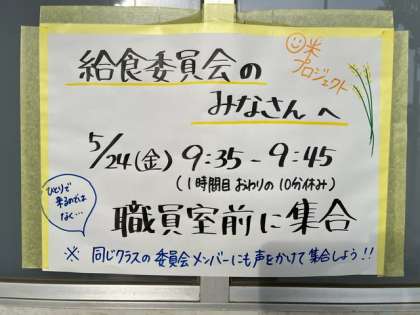 給食委員会の
みなさんへ
米
プロジェクト
5/24(金) 9:35-9:45
(1時間目おわりの10分休み)
ひとりで
来るのではなく…
職員室前に集合
※ 同じクラスの委員会メンバーにも声をかけて集合しよう!!